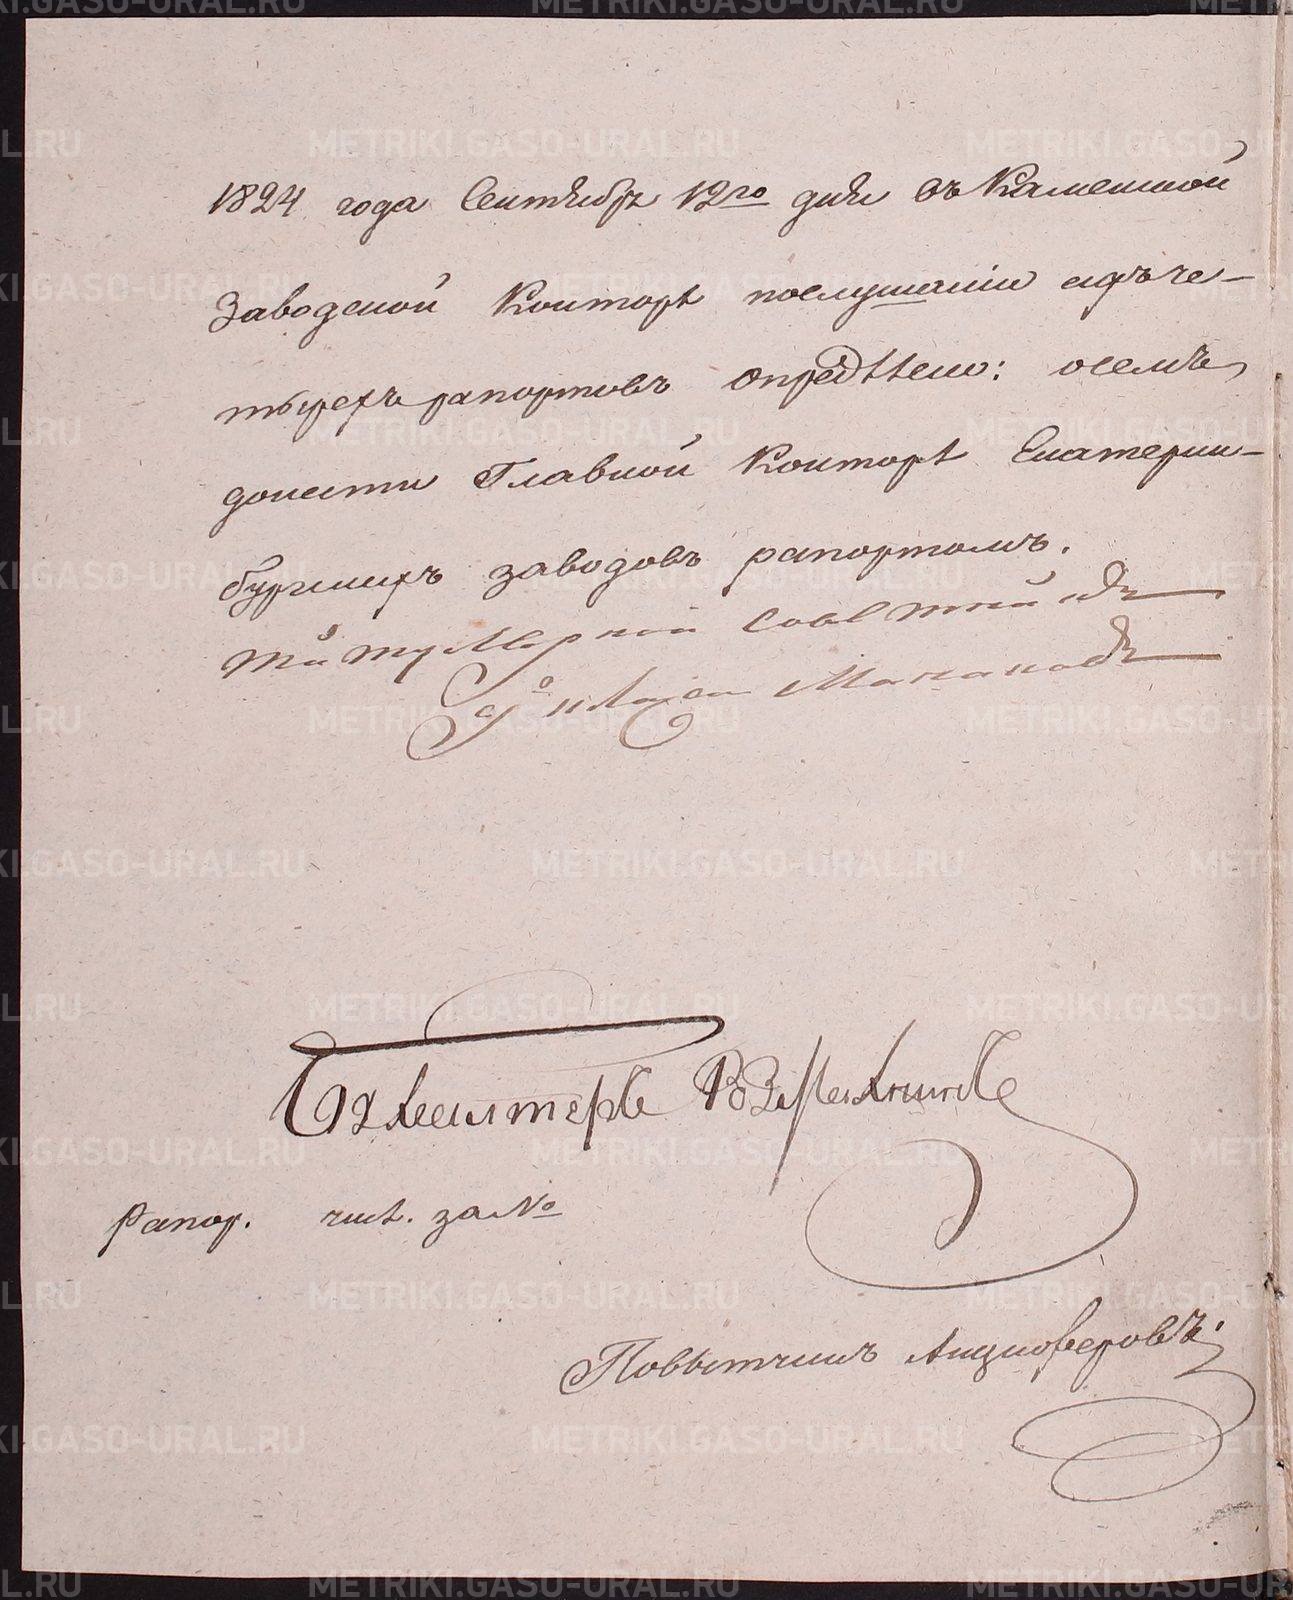 1824 года Сентября 12го дня въ Каменской
Заводской Конторѣ послушаніи сихъ че-
тырехъ рапортовъ опредѣлено: осемъ
донести Главной Конторѣ Екатерин-
бургскихъ заводовъ рапортомъ.
титулярній Совѣтникъ
Манаковъ
Бухгалтеръ
Рапор. за №
Повытчикъ Анциферовъ.